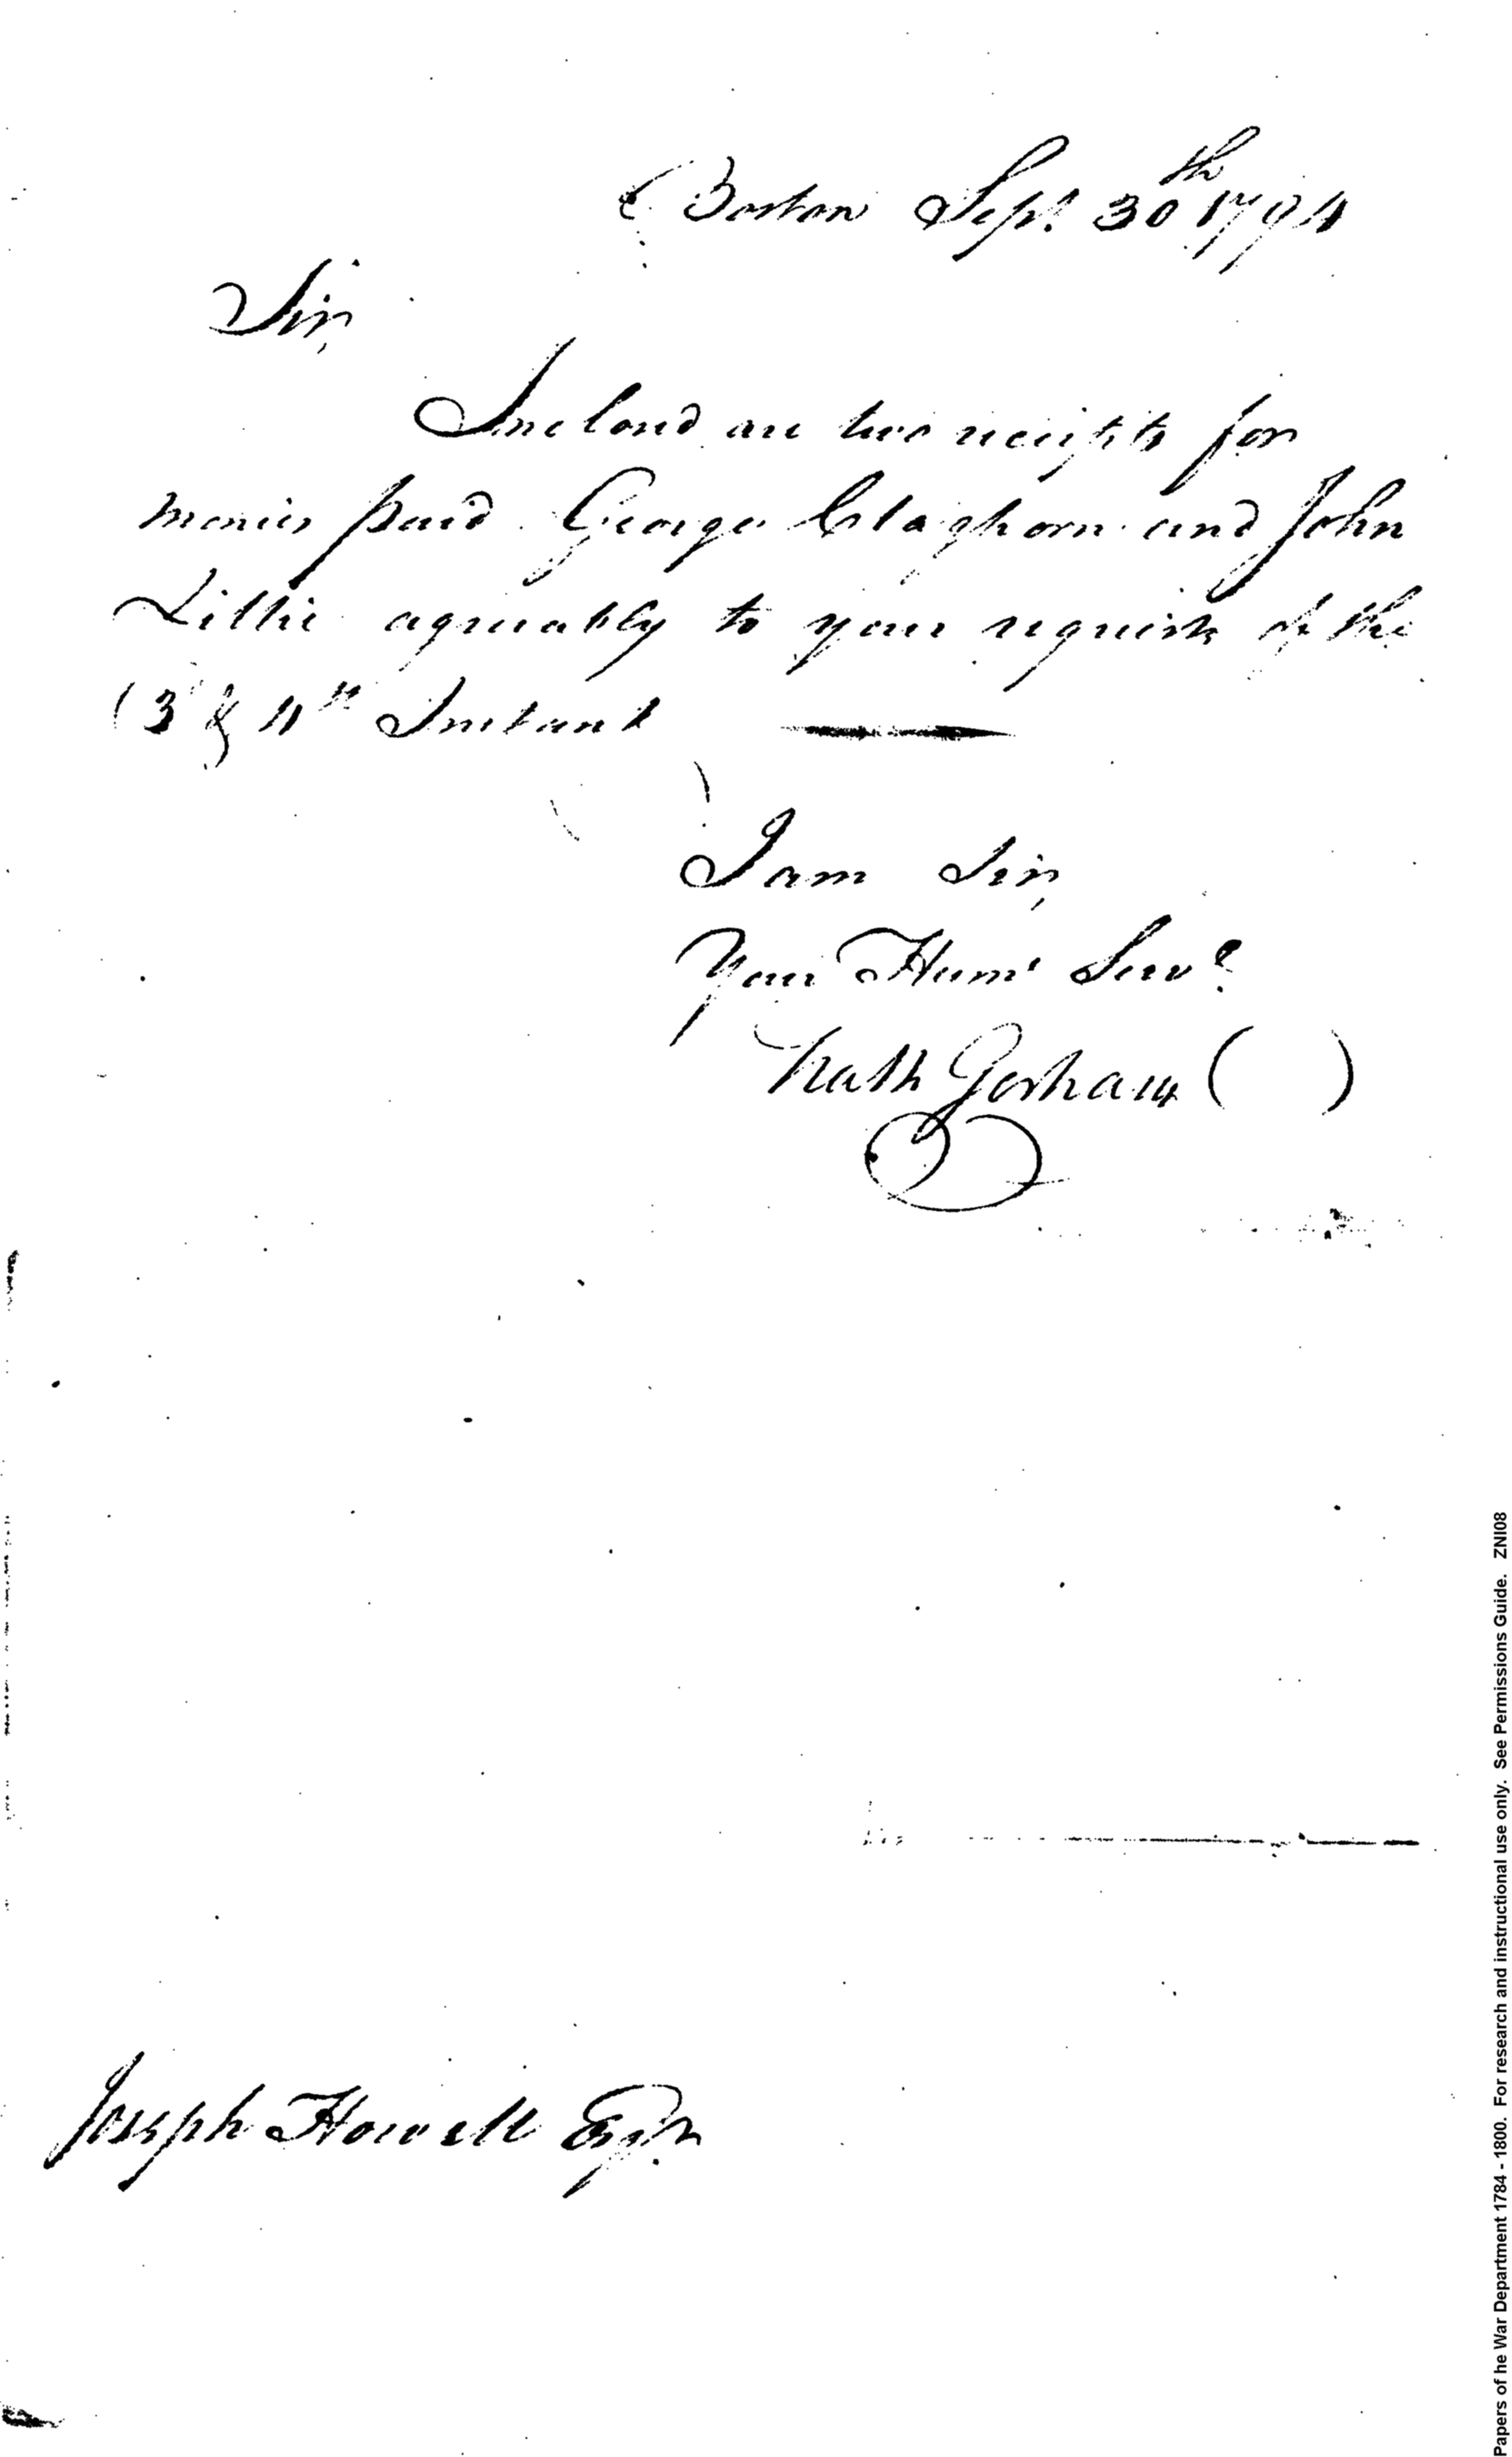 Boston Sept. 30th 1794
Sir,
Inclosed are two receipts for
monies paid George Claghorn and John
Lillie agreeably to your requests of the
3 & 4th Instant
I am Sir,
Your Hume Servt
Nath Gorham
Joseph Howell Esqr
Papers of he War Department 1784 - 1800. For research and instructional use only. See Permissions Guide. ZNI08